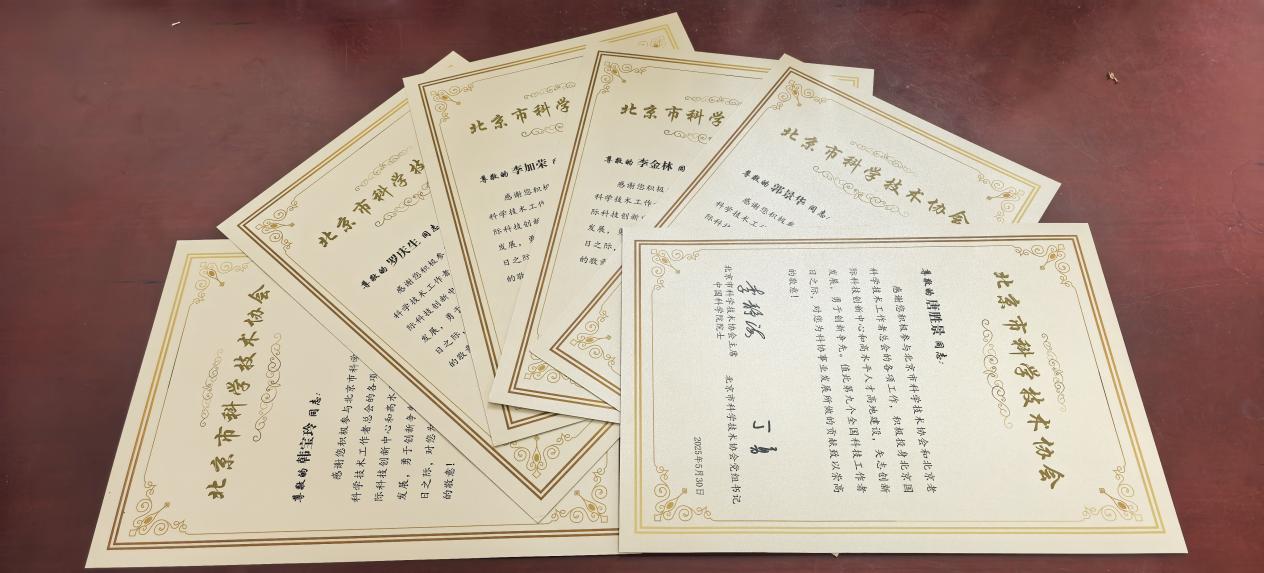 北京市科学技术协会
尊敬的韩宝玲同志:
感谢您积极参与北京市科学
科学技术工作者总会的各项
际科技创新中心和高水
发展,勇于创新争
日之际,对您为
的敬意!
北京市科学技
尊敬的罗庆生同志
感谢您积极参
科学技术工作者
际科技创新中
发展,勇于
日之际,
的敬
北京市科学
尊敬的李加荣
感谢您积极
科学技术工
际科技创新
发展,勇
日之际
的敬
北京市科学
尊敬的李金林同
感谢您积极
科学技术工作
际科技创新
发展,
日之际,
的敬
北京市科学技术协会
尊敬的郭景华同志:
感谢您积极参
科学技术工作
际科
北京市科学技术协会
尊敬的唐胜景同志:
感谢您积极参与北京市科学技术协会和北京老
科学技术工作者总会的各项工作,积极投身北京国
际科技创新中心和高水平人才高地建设,矢志创新
发展,勇于创新争先。值此第九个全国科技工作者
日之际,对您为科协事业发展所做的贡献致以崇高
的敬意!
李静海 丁勇
北京市科学技术协会主席 北京市科学技术协会党组书记
中国科学院院士
2025年5月30日